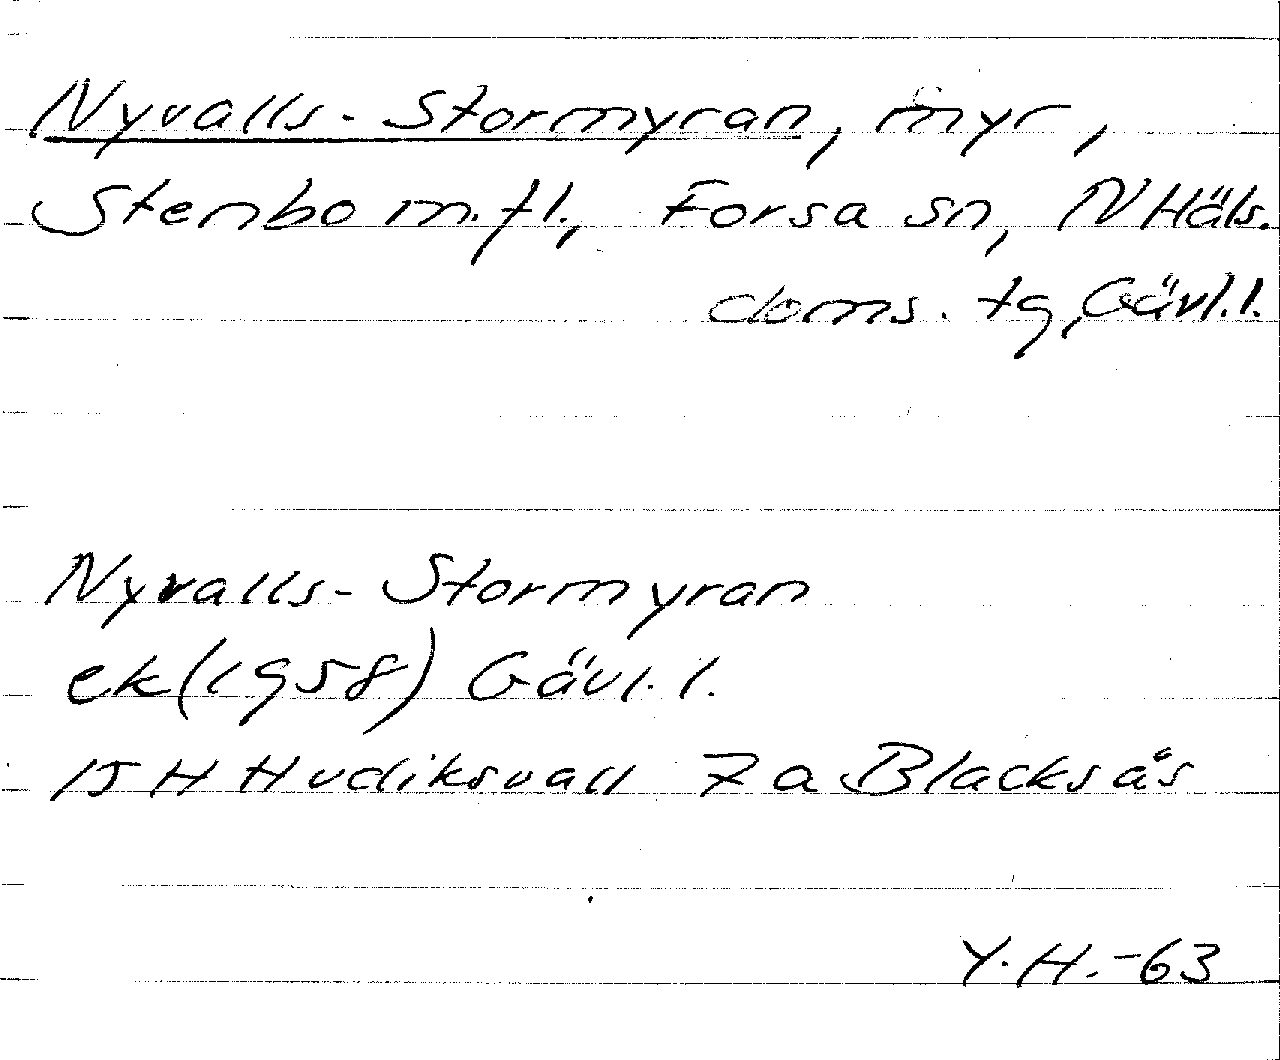 Nyvalls-Stormyran, myr,
Stenbo m.fl., Forsa sn, N Häls.
doms. tg, Gävl.l.
Nyvalls-Stormyran
ek(1958) Gävl.l.
15 H Hudiksvall 7a Blacksås
Y.H.-63